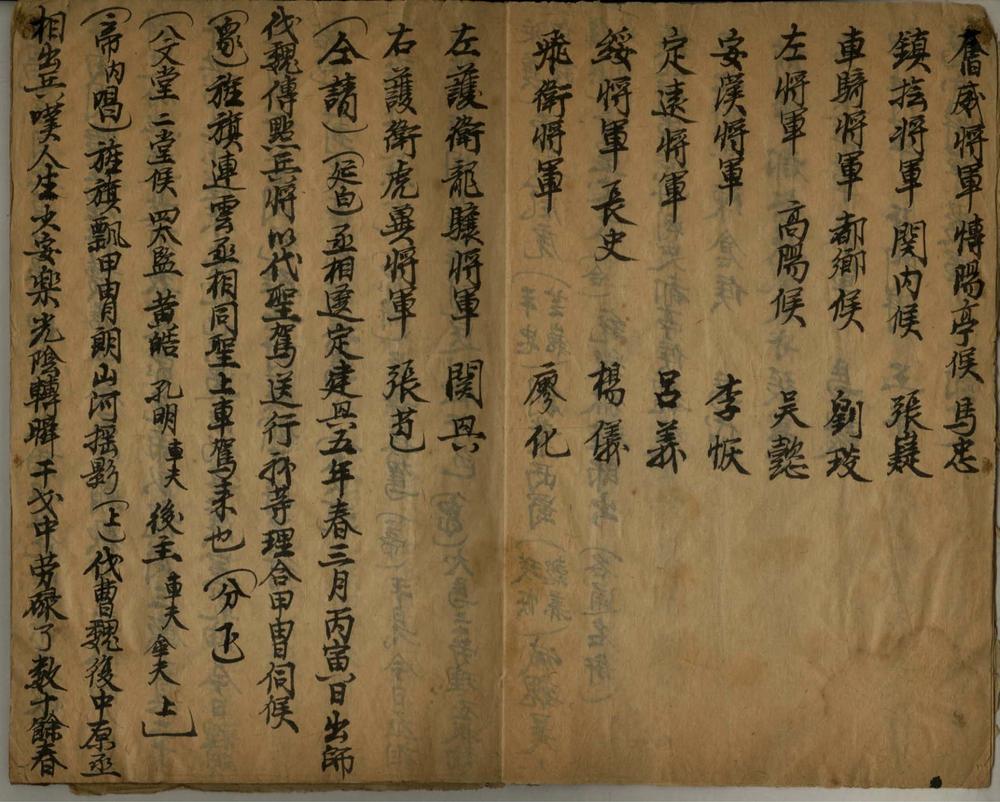 奮威將軍愽陽亭候 馬忠
鎮撫將軍 関内候 張嶷
車騎將軍 都鄉候 劉琰
左將軍 高陽候 吴懿
安漢將軍 李恢
定逺將軍 吕義
綏將軍長史 楊儀
飛衛將軍 廖化
左護衛龍驤將軍 関興
右護衛虎異將軍 張苞
(仝請)(延白)丞相選定建興五年春三月丙寅日出師
伐魏傳點兵將以代聖駕送行 等理合甲胄伺候
(衆)旌旗連雲丞相同聖上車駕来也(分下)
(八文堂二堂候四太監黄皓 孔明車夫 後主車夫傘夫上)
(帝内唱)旌旗飄甲胄朗山河摇影(上)伐曹魏復中原丞
相出兵嘆人生少安樂光陰轉瞬干戈中劳碌了数十餘春